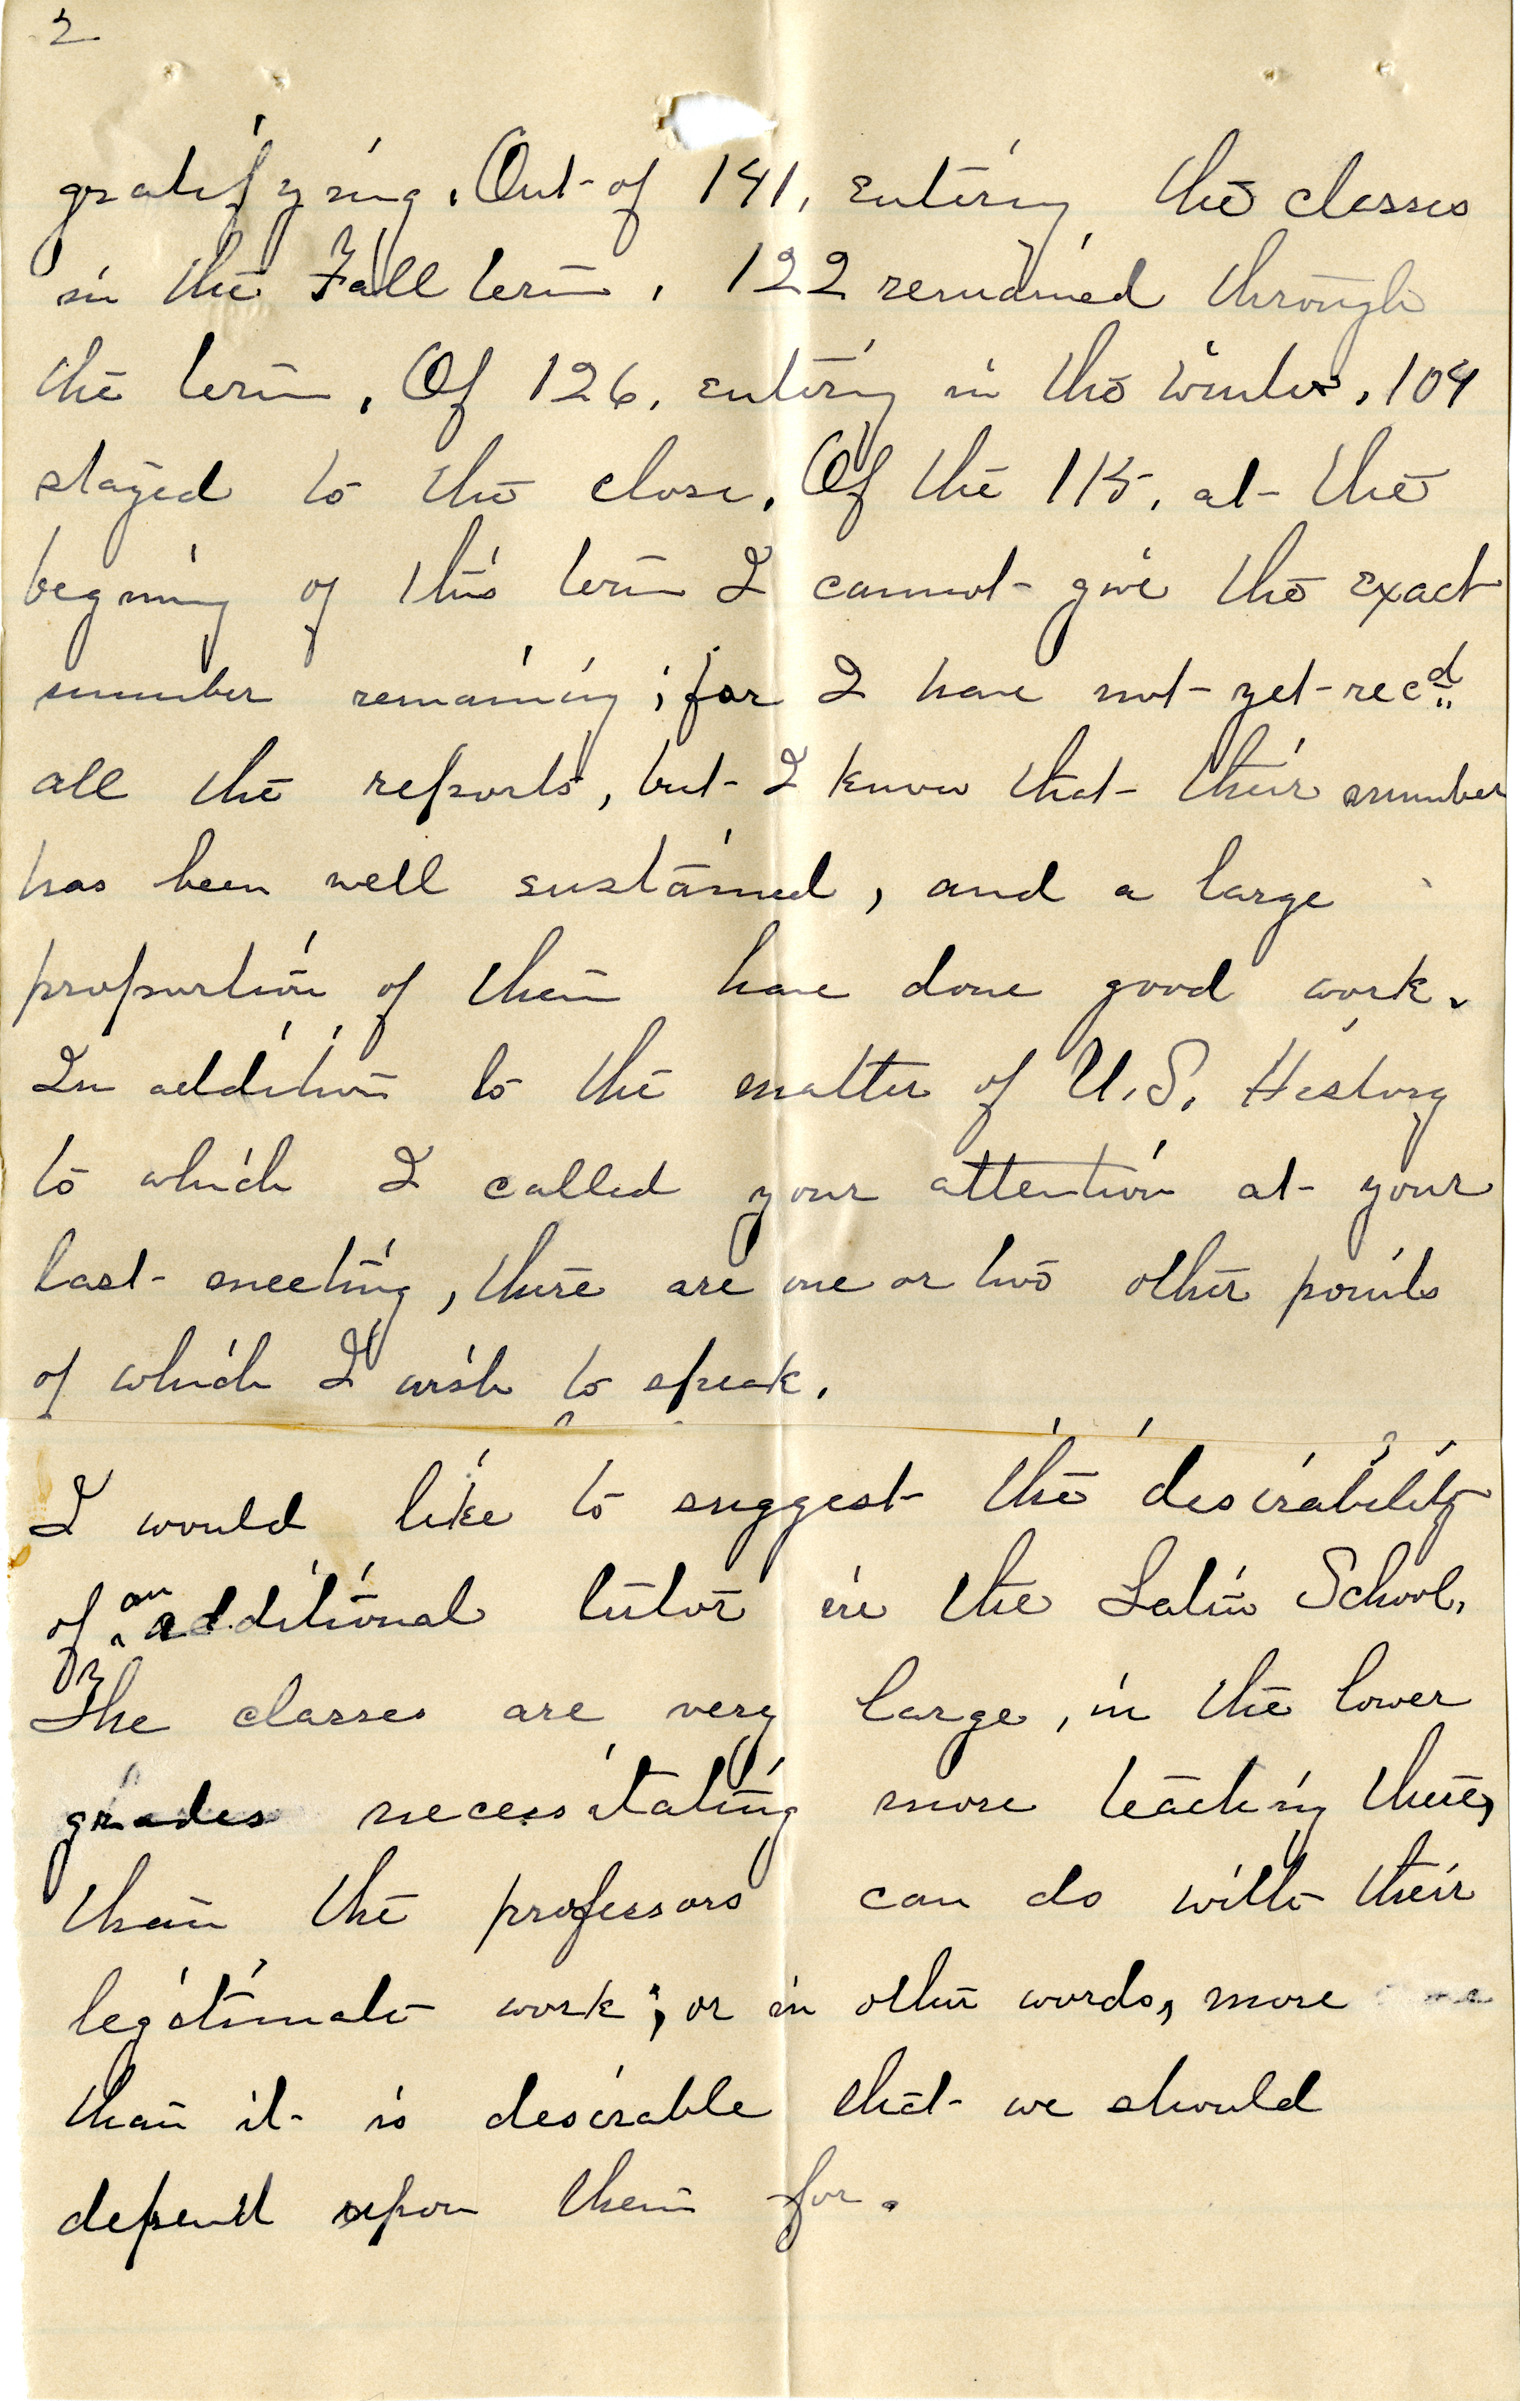 2
gratifying. Out of 141, entering the classes
in the Fall term, 122 remained through
the term. Of 126, entering in the winter, 104
stayed to the close. Of the 115, at the
begning of this term I cannot give the exact
number remaining; for I have not yet recd
all the reports, but I know that their number
has been well sustained, and a large
proportion of them have done good work.
In addition to the matter of U.S. History
to which I called your attention at your
last meeting, there are one or two other points
of which I wish to speak.
I would like to suggest the desirability
of an additional tutor in the Latin School.
The classes are very large, in the lower
grades necessitating more teaching there,
than the professors can do with their
legitimate work; or in other words, more
than it is desirable that we should
depend upon them for.